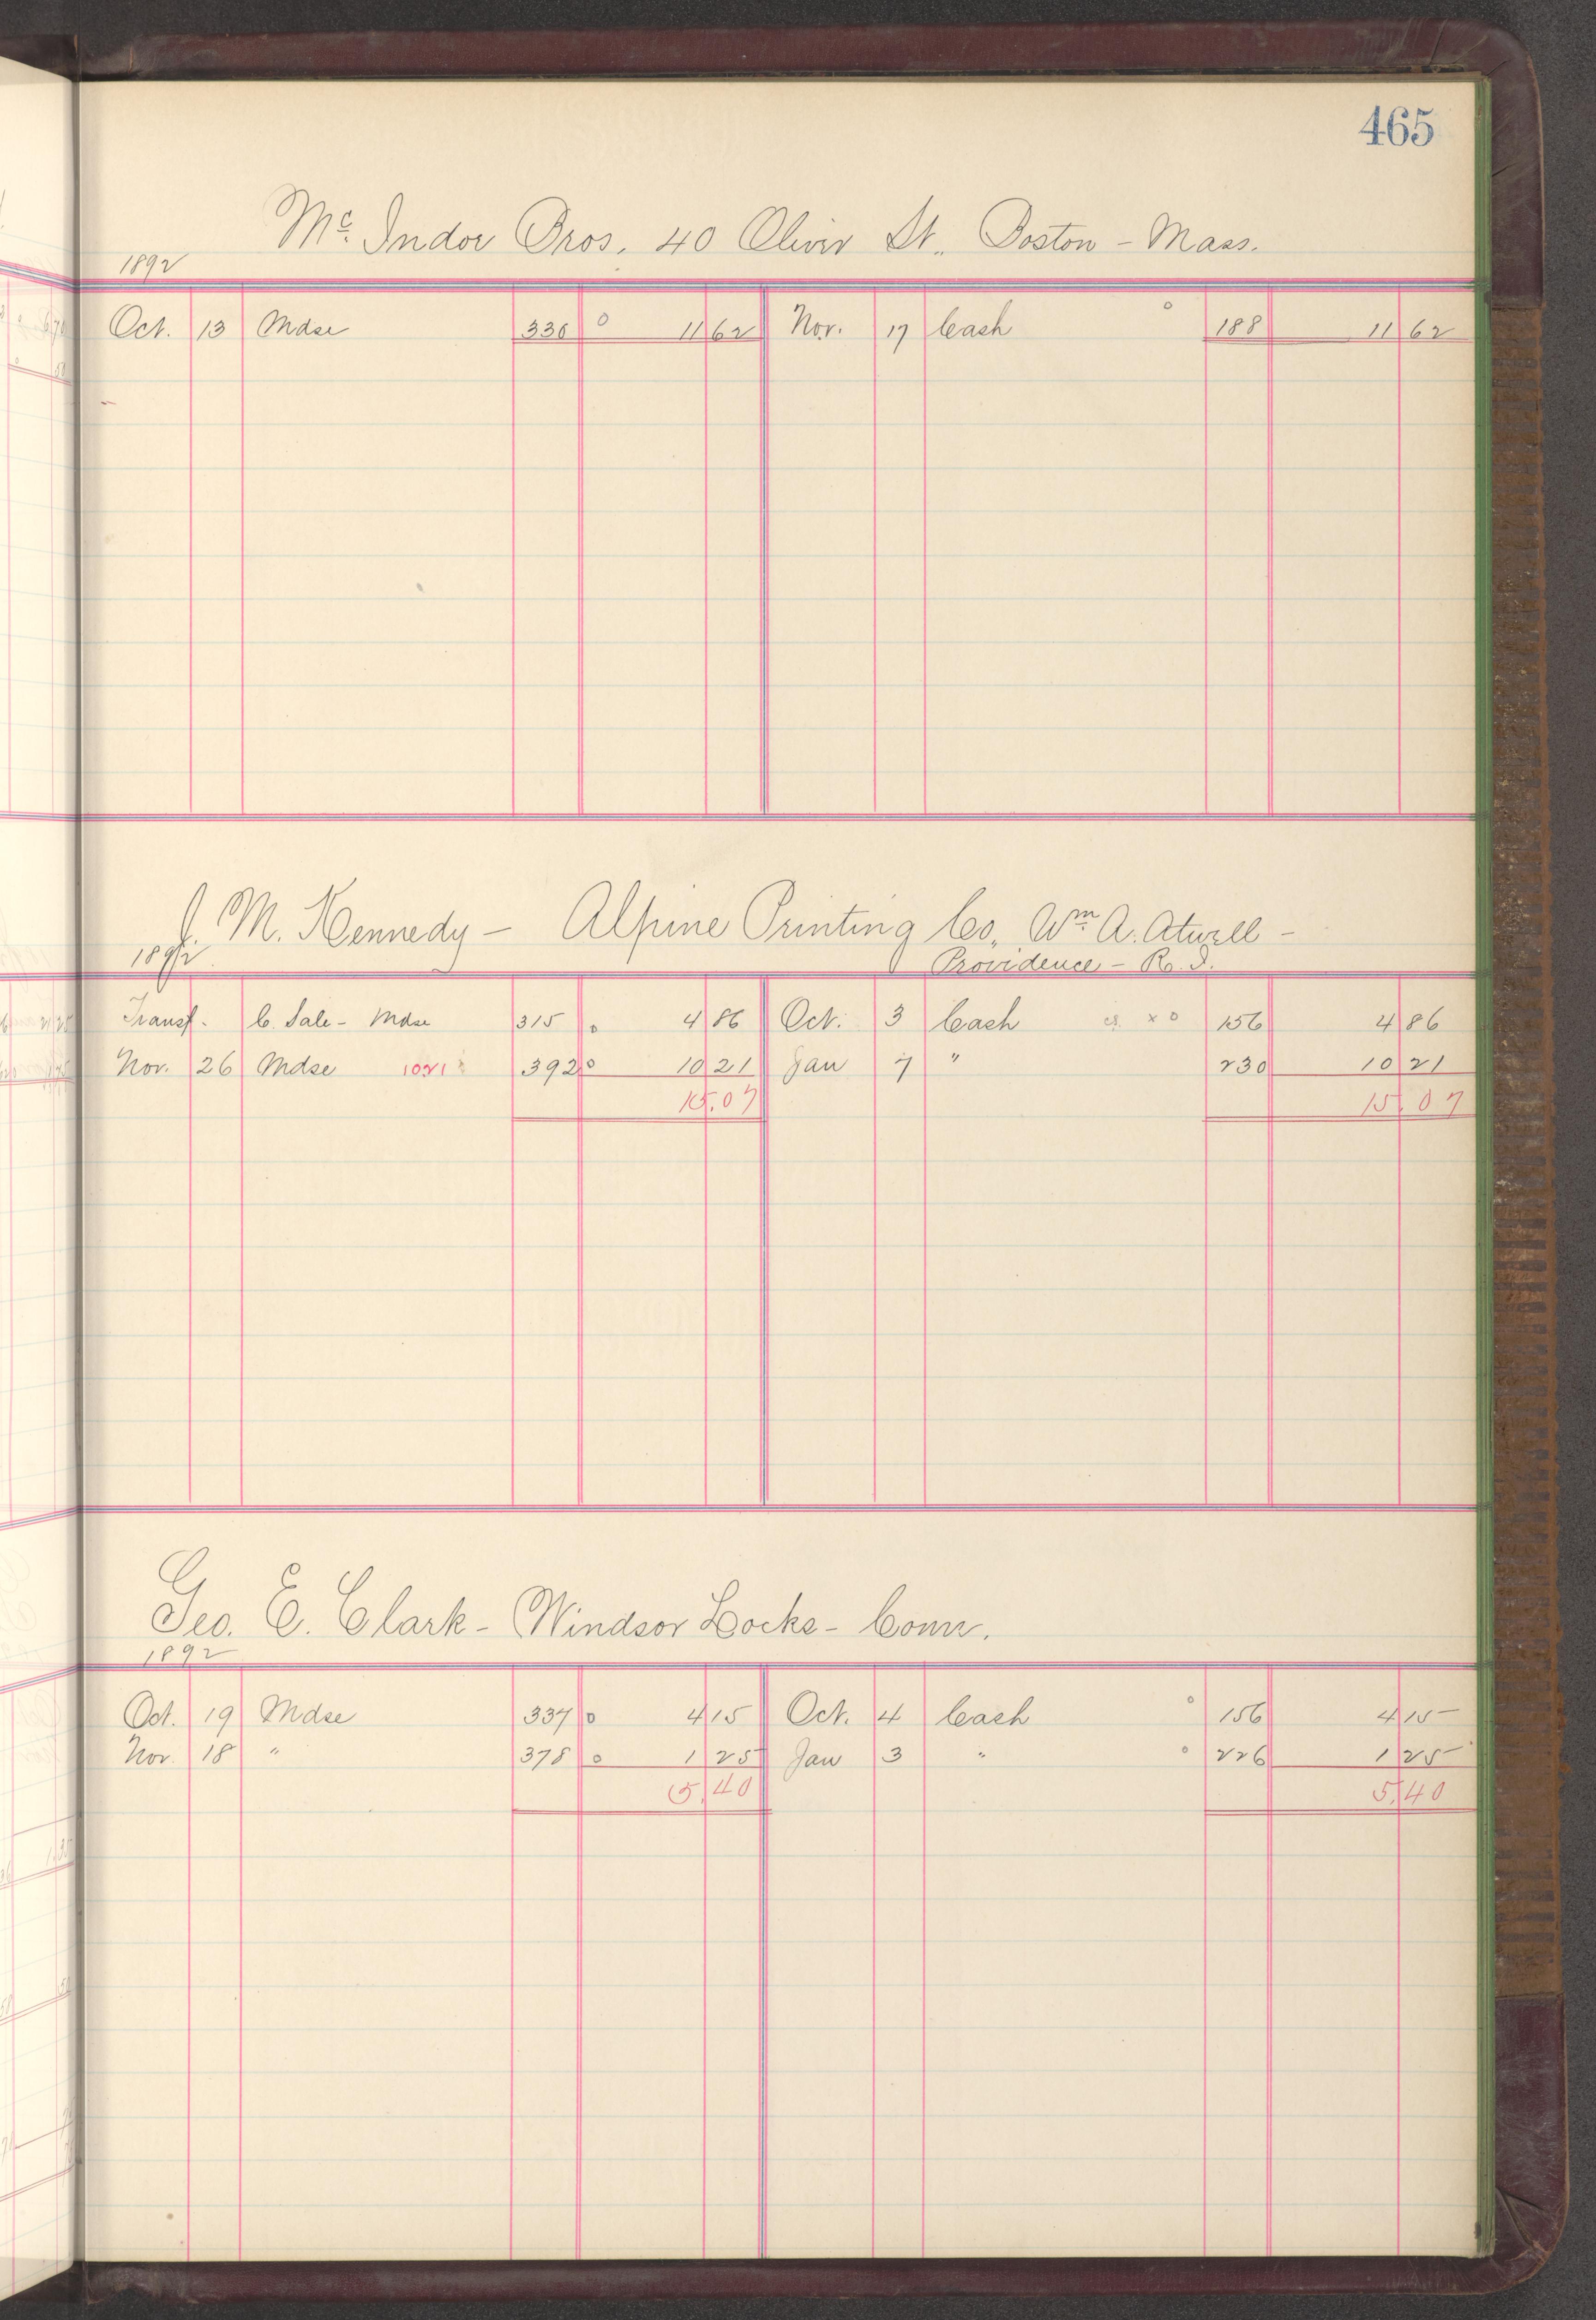 465
Mc. Indoe Bros. 40 Oliver St. Boston - Mass.
1892
Oct. 13 Mdse 330 o 11 62 Nov. 17 Cash o 188 11 62
J. M. Kennedy - Alpine Printing Co., Wm. A. Atwell -
1892 Providence - R. I.
Transf. C. Sale - Mdse 315 o 4 86 Oct. 3 Cash x o 156 4 86
Nov. 26 Mdse 1021 392 o 10 21 Jan 7 " 230 10 21
15.07 15.07
Geo. E. Clark - Windsor Locks - Conn.
1892
Oct. 19 Mdse 337 o 4 15 Oct. 4 Cash o 156 4 15
Nov. 18 " 378 o 1 25 Jan 3 " o 226 1 25
5.40 5.40